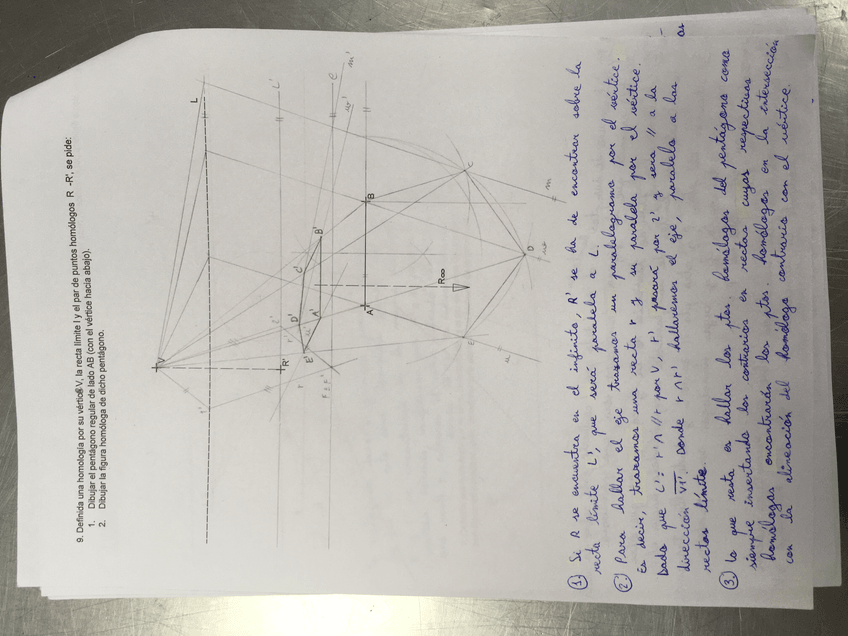 9. Definida una homología por su vértice V, la recta límite l y el par de puntos homólogos R -R', se pide:
1. Dibujar el pentágono regular de lado AB (con el vértice hacia abajo).
2. Dibujar la figura homóloga de dicho pentágono.
V
L
L'
R'
e
m'
D'
C'
E'
A'
B'
A
B
R∞
E
C
D
m
n
① Si R se encuentra en el infinito, R' se ha de encontrar sobre la
recta límite L', que será paralela a L.
② Para hallar el eje trazamos un paralelogramo por el vértice.
Es decir, trazamos una recta r y su paralela por el vértice.
Dado que L' = r' ∩ // r por V, r' pasará por 2' y será // a la
dirección V1'. Donde r ∩ r' hallaremos el eje, paralela a las
rectas límite.
③ Lo que resta es hallar los ptos homólogos del pentágono como
siempre insertando los contrarios en rectas cuyas respectivas
homólogas encontrarán los ptos. homólogos en la intersección
con la alineación del homólogo contrario con el vértice.